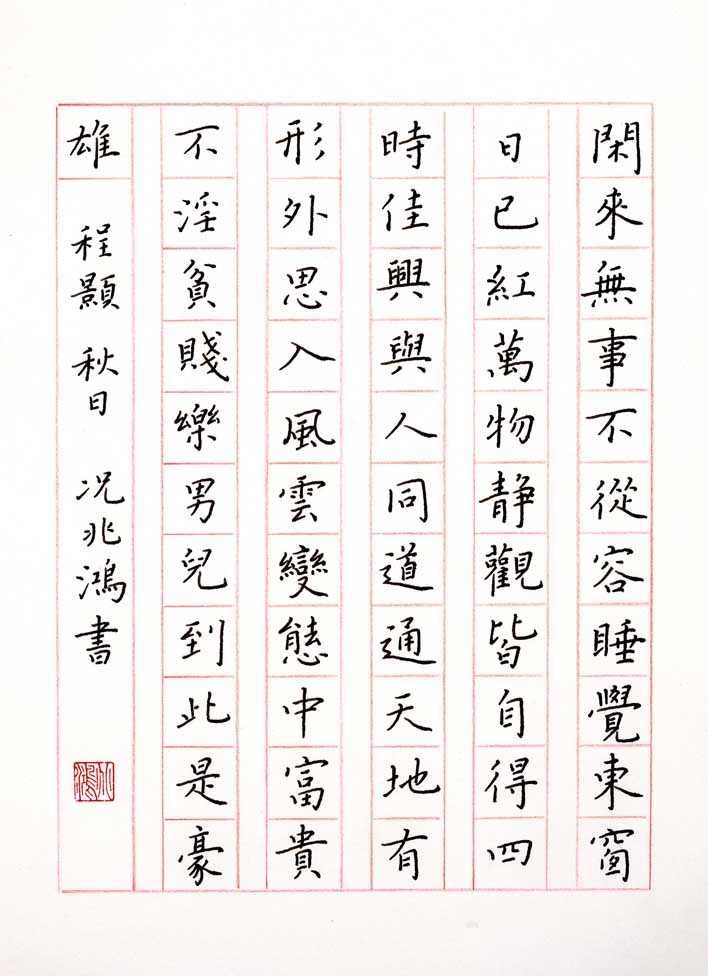 閑來無事不從容睡覺東窗
日已紅萬物靜觀皆自得四
時佳興與人同道通天地有
形外思入風雲變態中富貴
不淫貧賤樂男兒到此是豪
雄 程顥 秋日 况兆鴻書
兆鴻